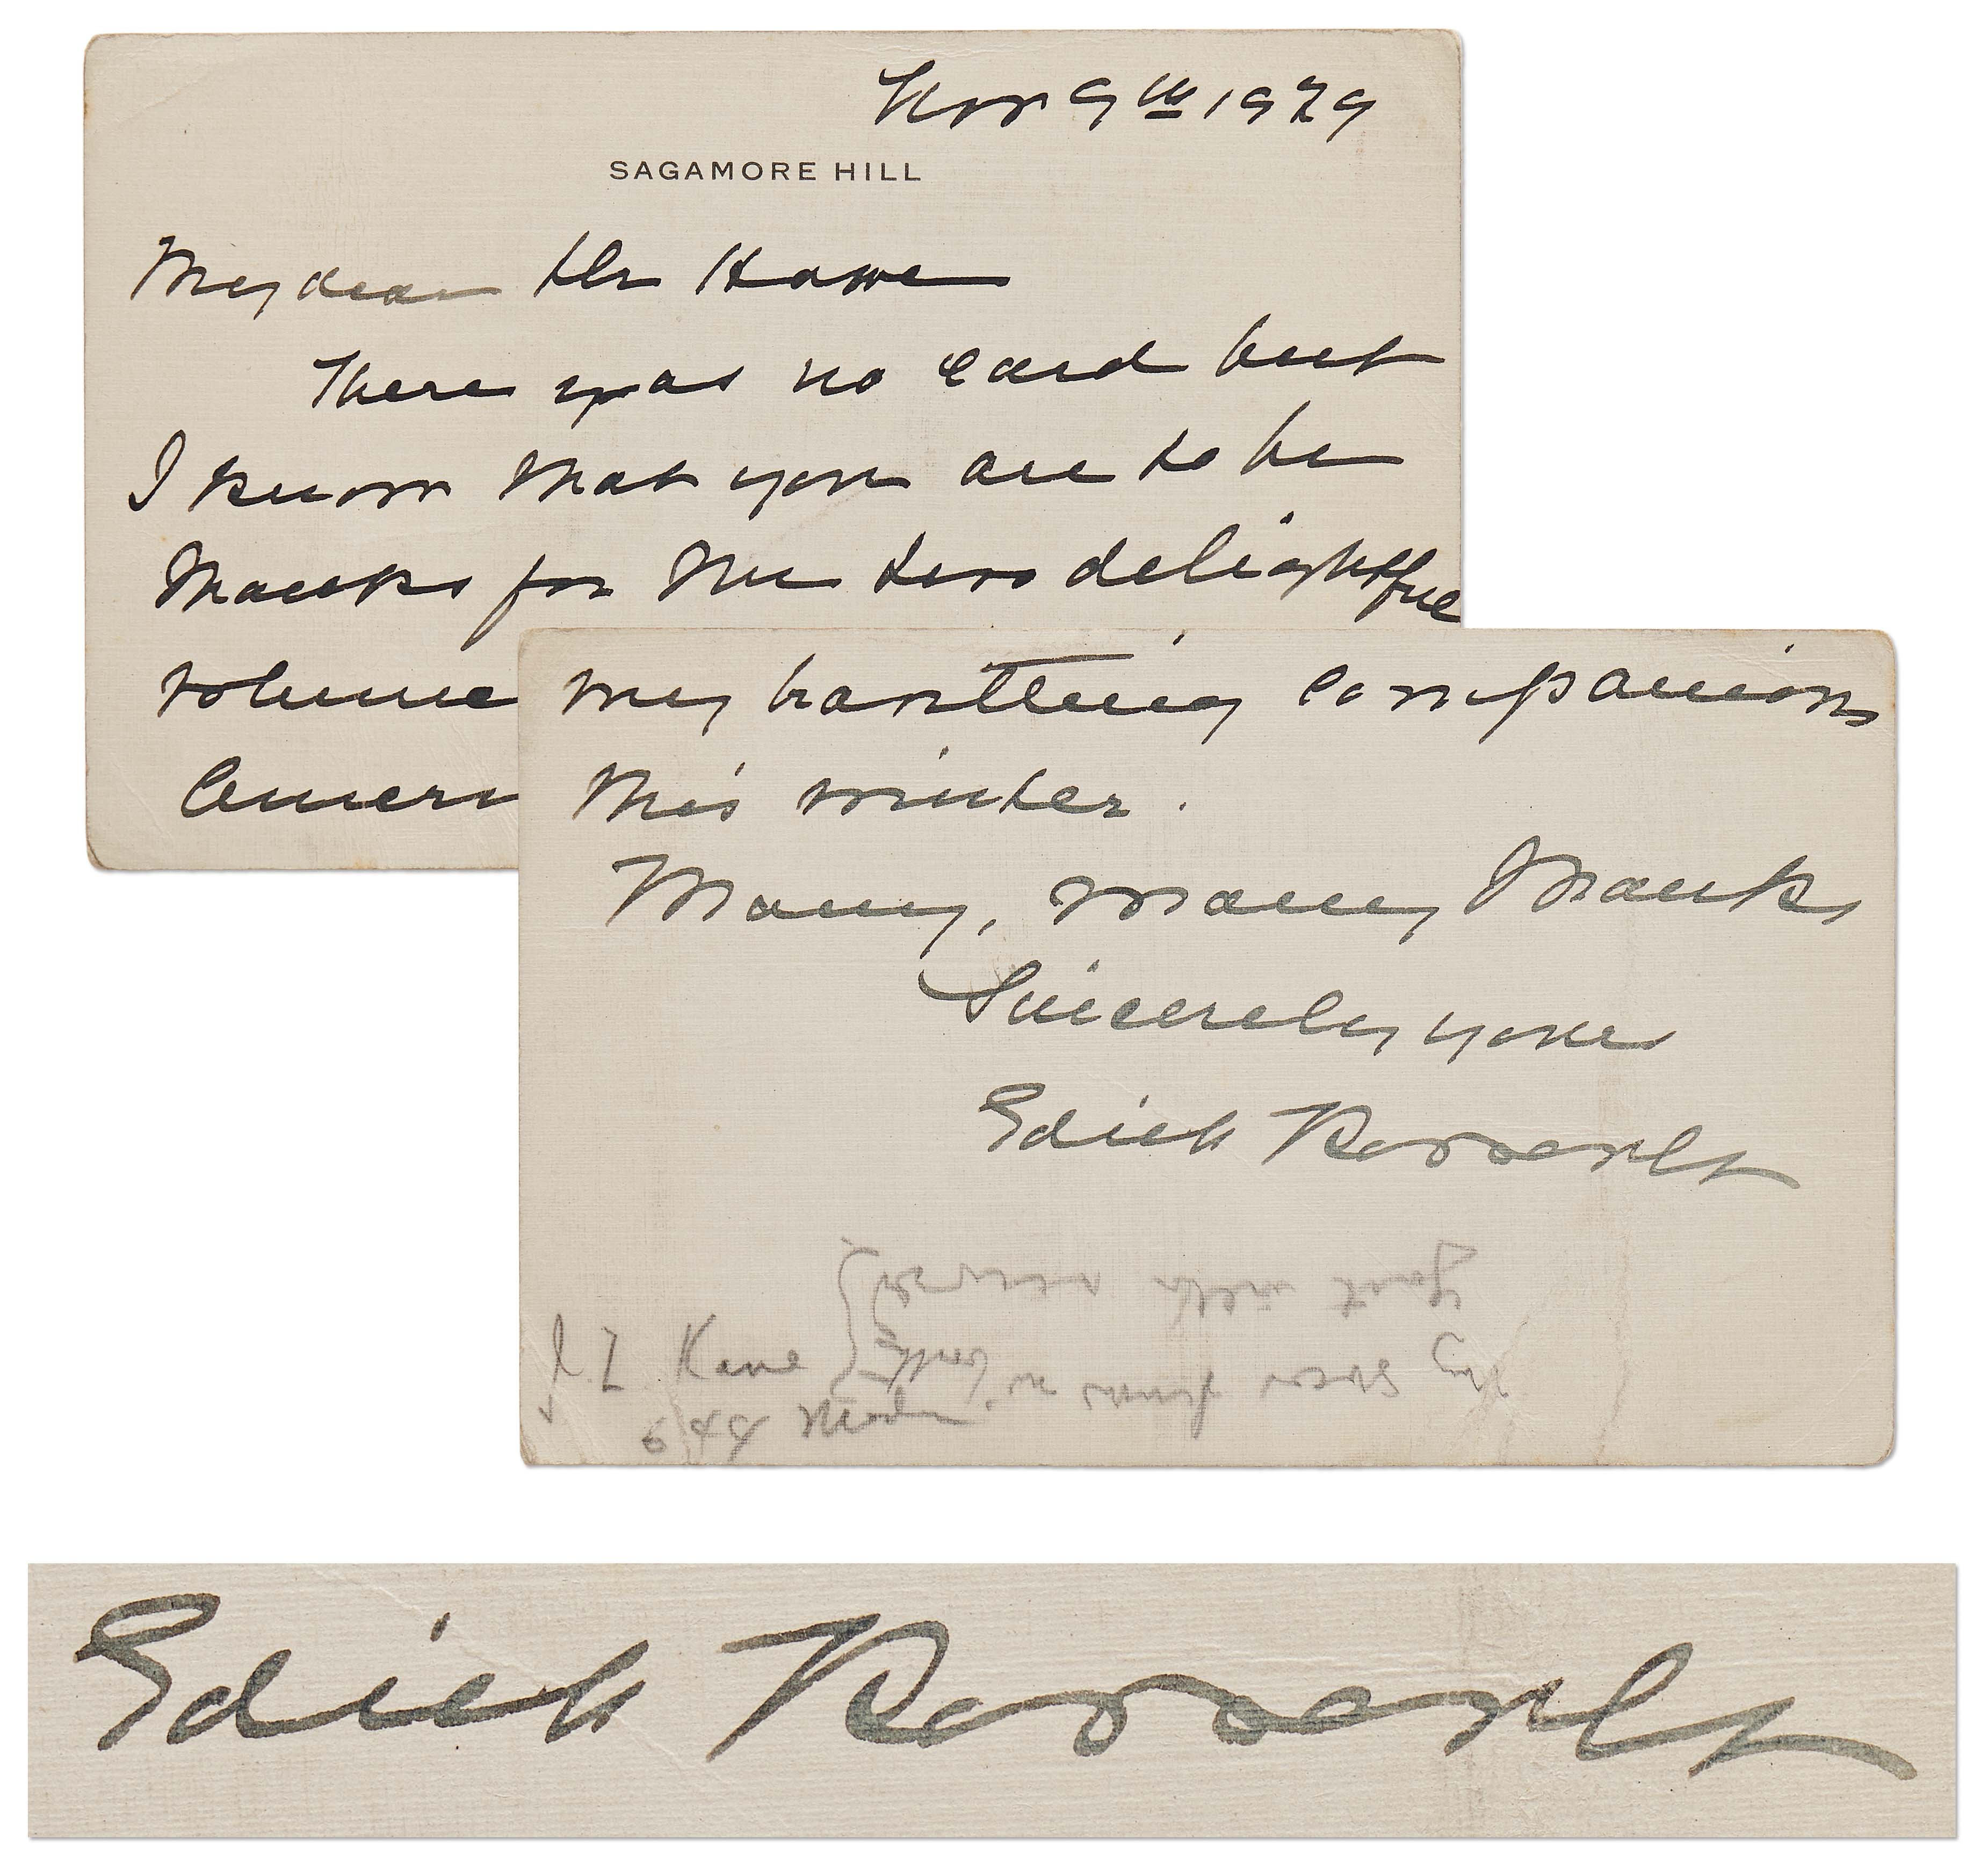 Nov 9th 1929
SAGAMORE HILL
My dear Mr Howe
There was no card but
I know that you are to be
thanks for the two delightful
volume
Ameri
my travelling companions
this winter.
Many, many thanks
Sincerely yours
Edith Roosevelt
Kane
644
Edith Roosevelt